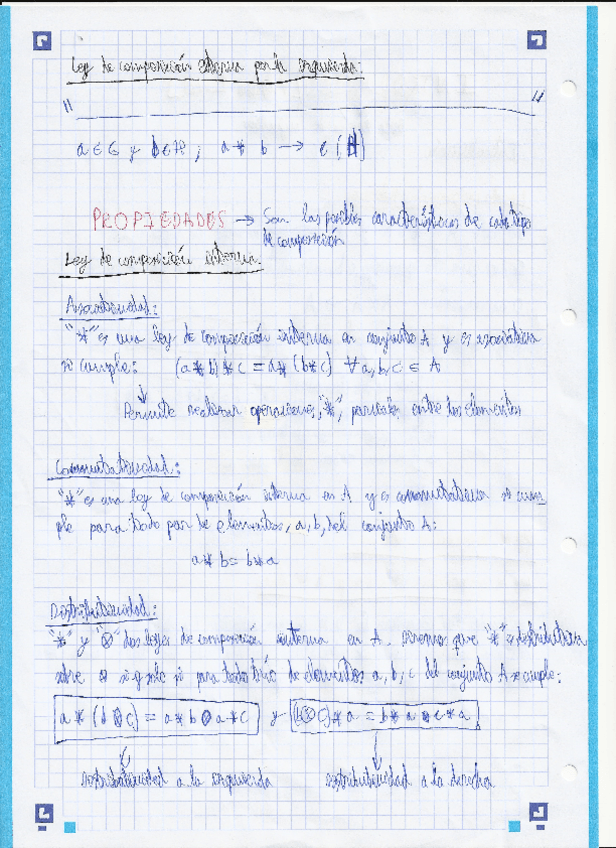 Ley de composición externa por la izquierda:
" "
a ∈ G y b ∈ H ; a * b → c (H)
PROPIEDADES → Son las posibles características de cada tipo
de composición
Ley de composición interna
Asociatividad:
"*" es una ley de composición interna en conjunto A y es asociativa
si cumple: (a * b) * c = a * (b * c) ∀ a, b, c ∈ A
Permite realizar operaciones, "*", parciales entre los elementos
Conmutatividad:
"*" es una ley de composición interna en A y es conmutativa si cum
ple para todo par de elementos, a, b, del conjunto A:
a * b = b * a
Distributividad:
"*" y "⊗" dos leyes de composición interna en A. diremos que "*" es distributiva
sobre ⊗ si y solo si para todo trío de elementos a, b, c del conjunto A se cumple:
a * (b ⊗ c) = a * b ⊗ a * c y (b ⊗ c) * a = b * a ⊗ c * a
distributividad a la izquierda distributividad a la derecha